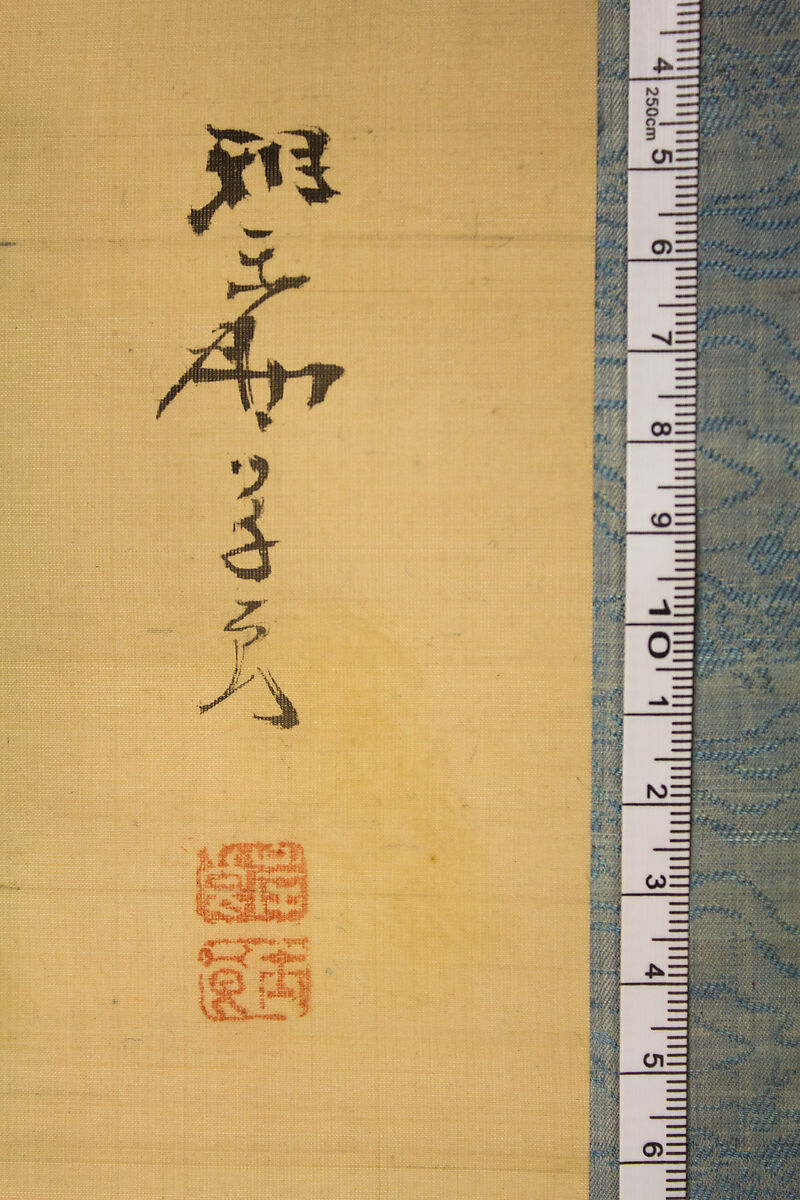 雅楽助岸良
4
250cm
5
6
7
8
9
10
1
2
3
4
5
6